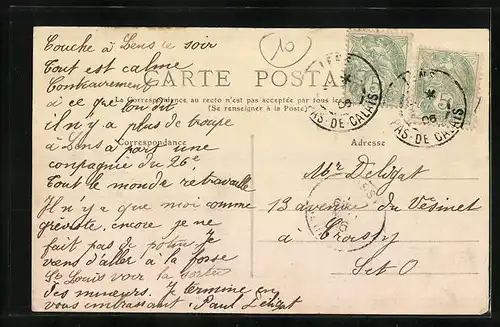 Couche à Lens ce soir
Tout est calme
Contrairement
à ce que l'on dit
il n'y a plus de troupe
à Lens à part une
compagnie du 26e
Tout le monde retravaille
Il n'y a que moi comme
gréviste, encore je ne
fait pas de
viens d'aller à la fosse
St Louis voir la sortie
des mineurs. Je termine en
vous embrassant. Paul Delizat
10
CARTE POSTALE
La Correspondance au recto n'est pas acceptée par tous les
(Se renseigner à la Poste)
Correspondance
Adresse
LENS
PAS-DE-CALAIS
5
LENS
PAS-DE-CALAIS
5
Mr Delizat
13 avenue du Vésinet
a Croissy
S et O